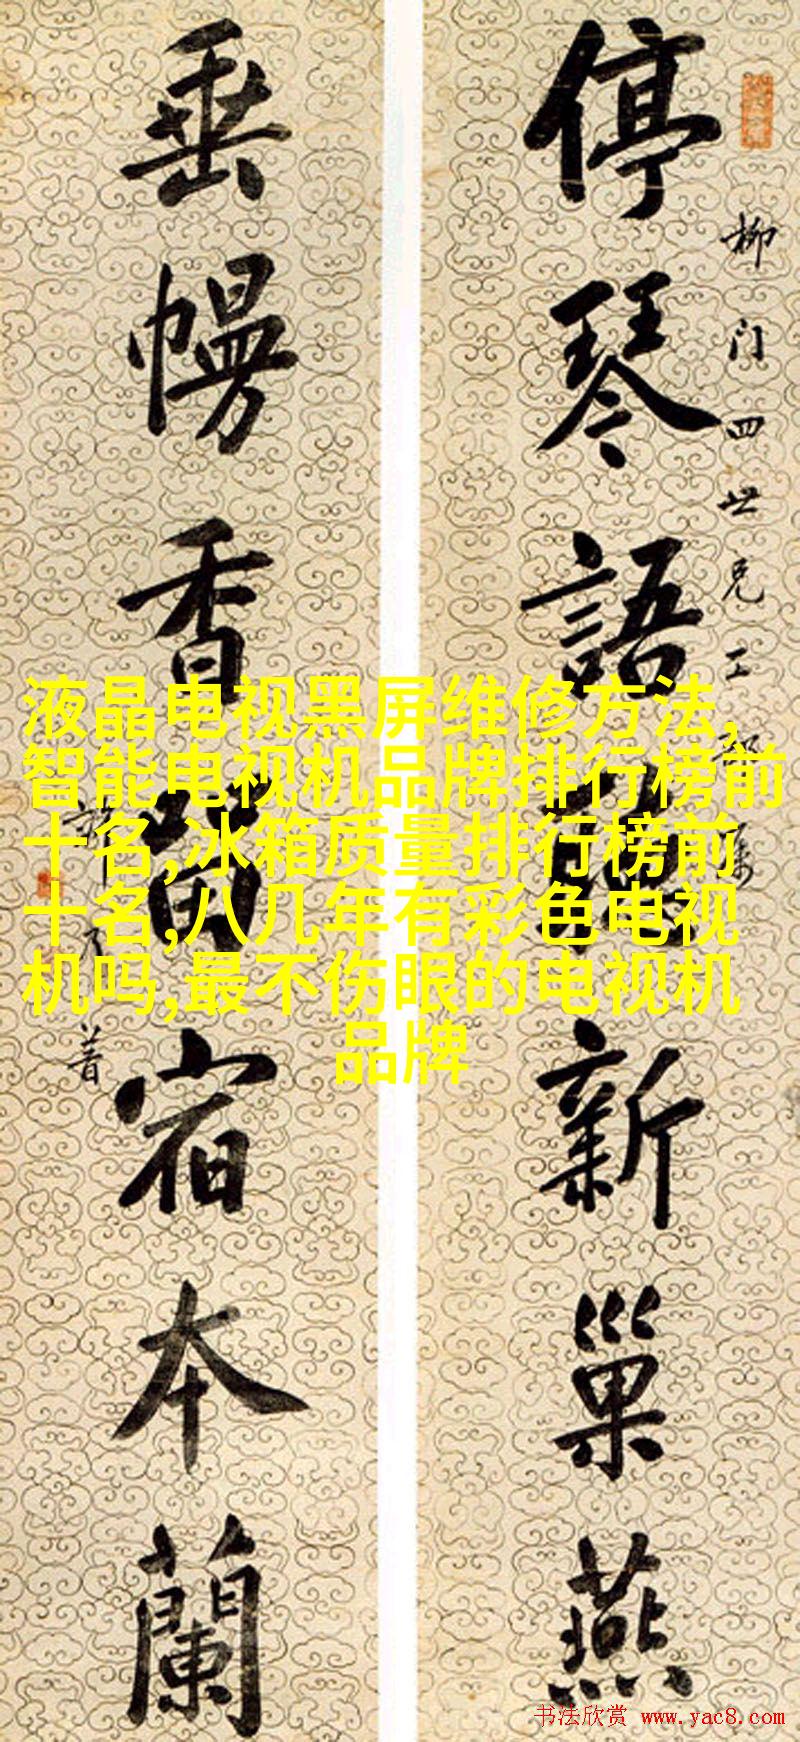 停琴語新巢燕
柳门四世兄工部
垂幔香留宿本蘭
液晶电视黑屏维修方法,
智能电视机品牌排行榜前
十名,冰箱质量排行榜前
十名,八几年有彩色电视
机吗,最不伤眼的电视机
品牌
书法欣赏 www.yac8.com